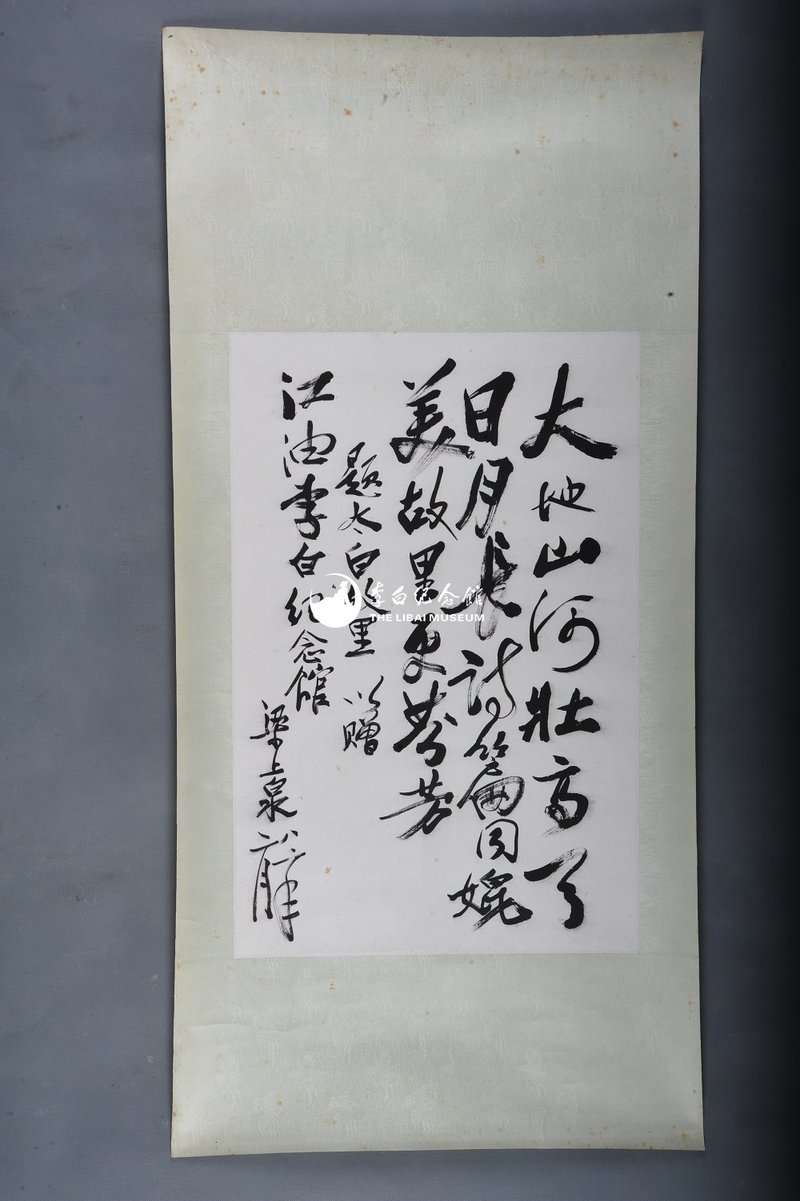 大地山河壮高天
日月长诗篇同媲
美故里更芬芳
题太白故里 以赠
江油李白纪念馆
梁上泉
李白纪念馆
THE LIBAI MUSEUM